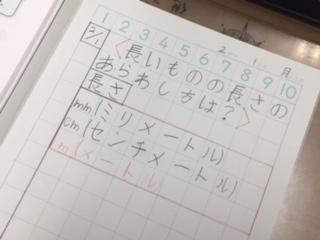 1 2 3 4 5 6 7 8 9 10
2 1 月
2/1
<長いものの長さの
あらわし方は?>
長さ
mm(ミリメートル)
cm(センチメートル)
m(メートル)